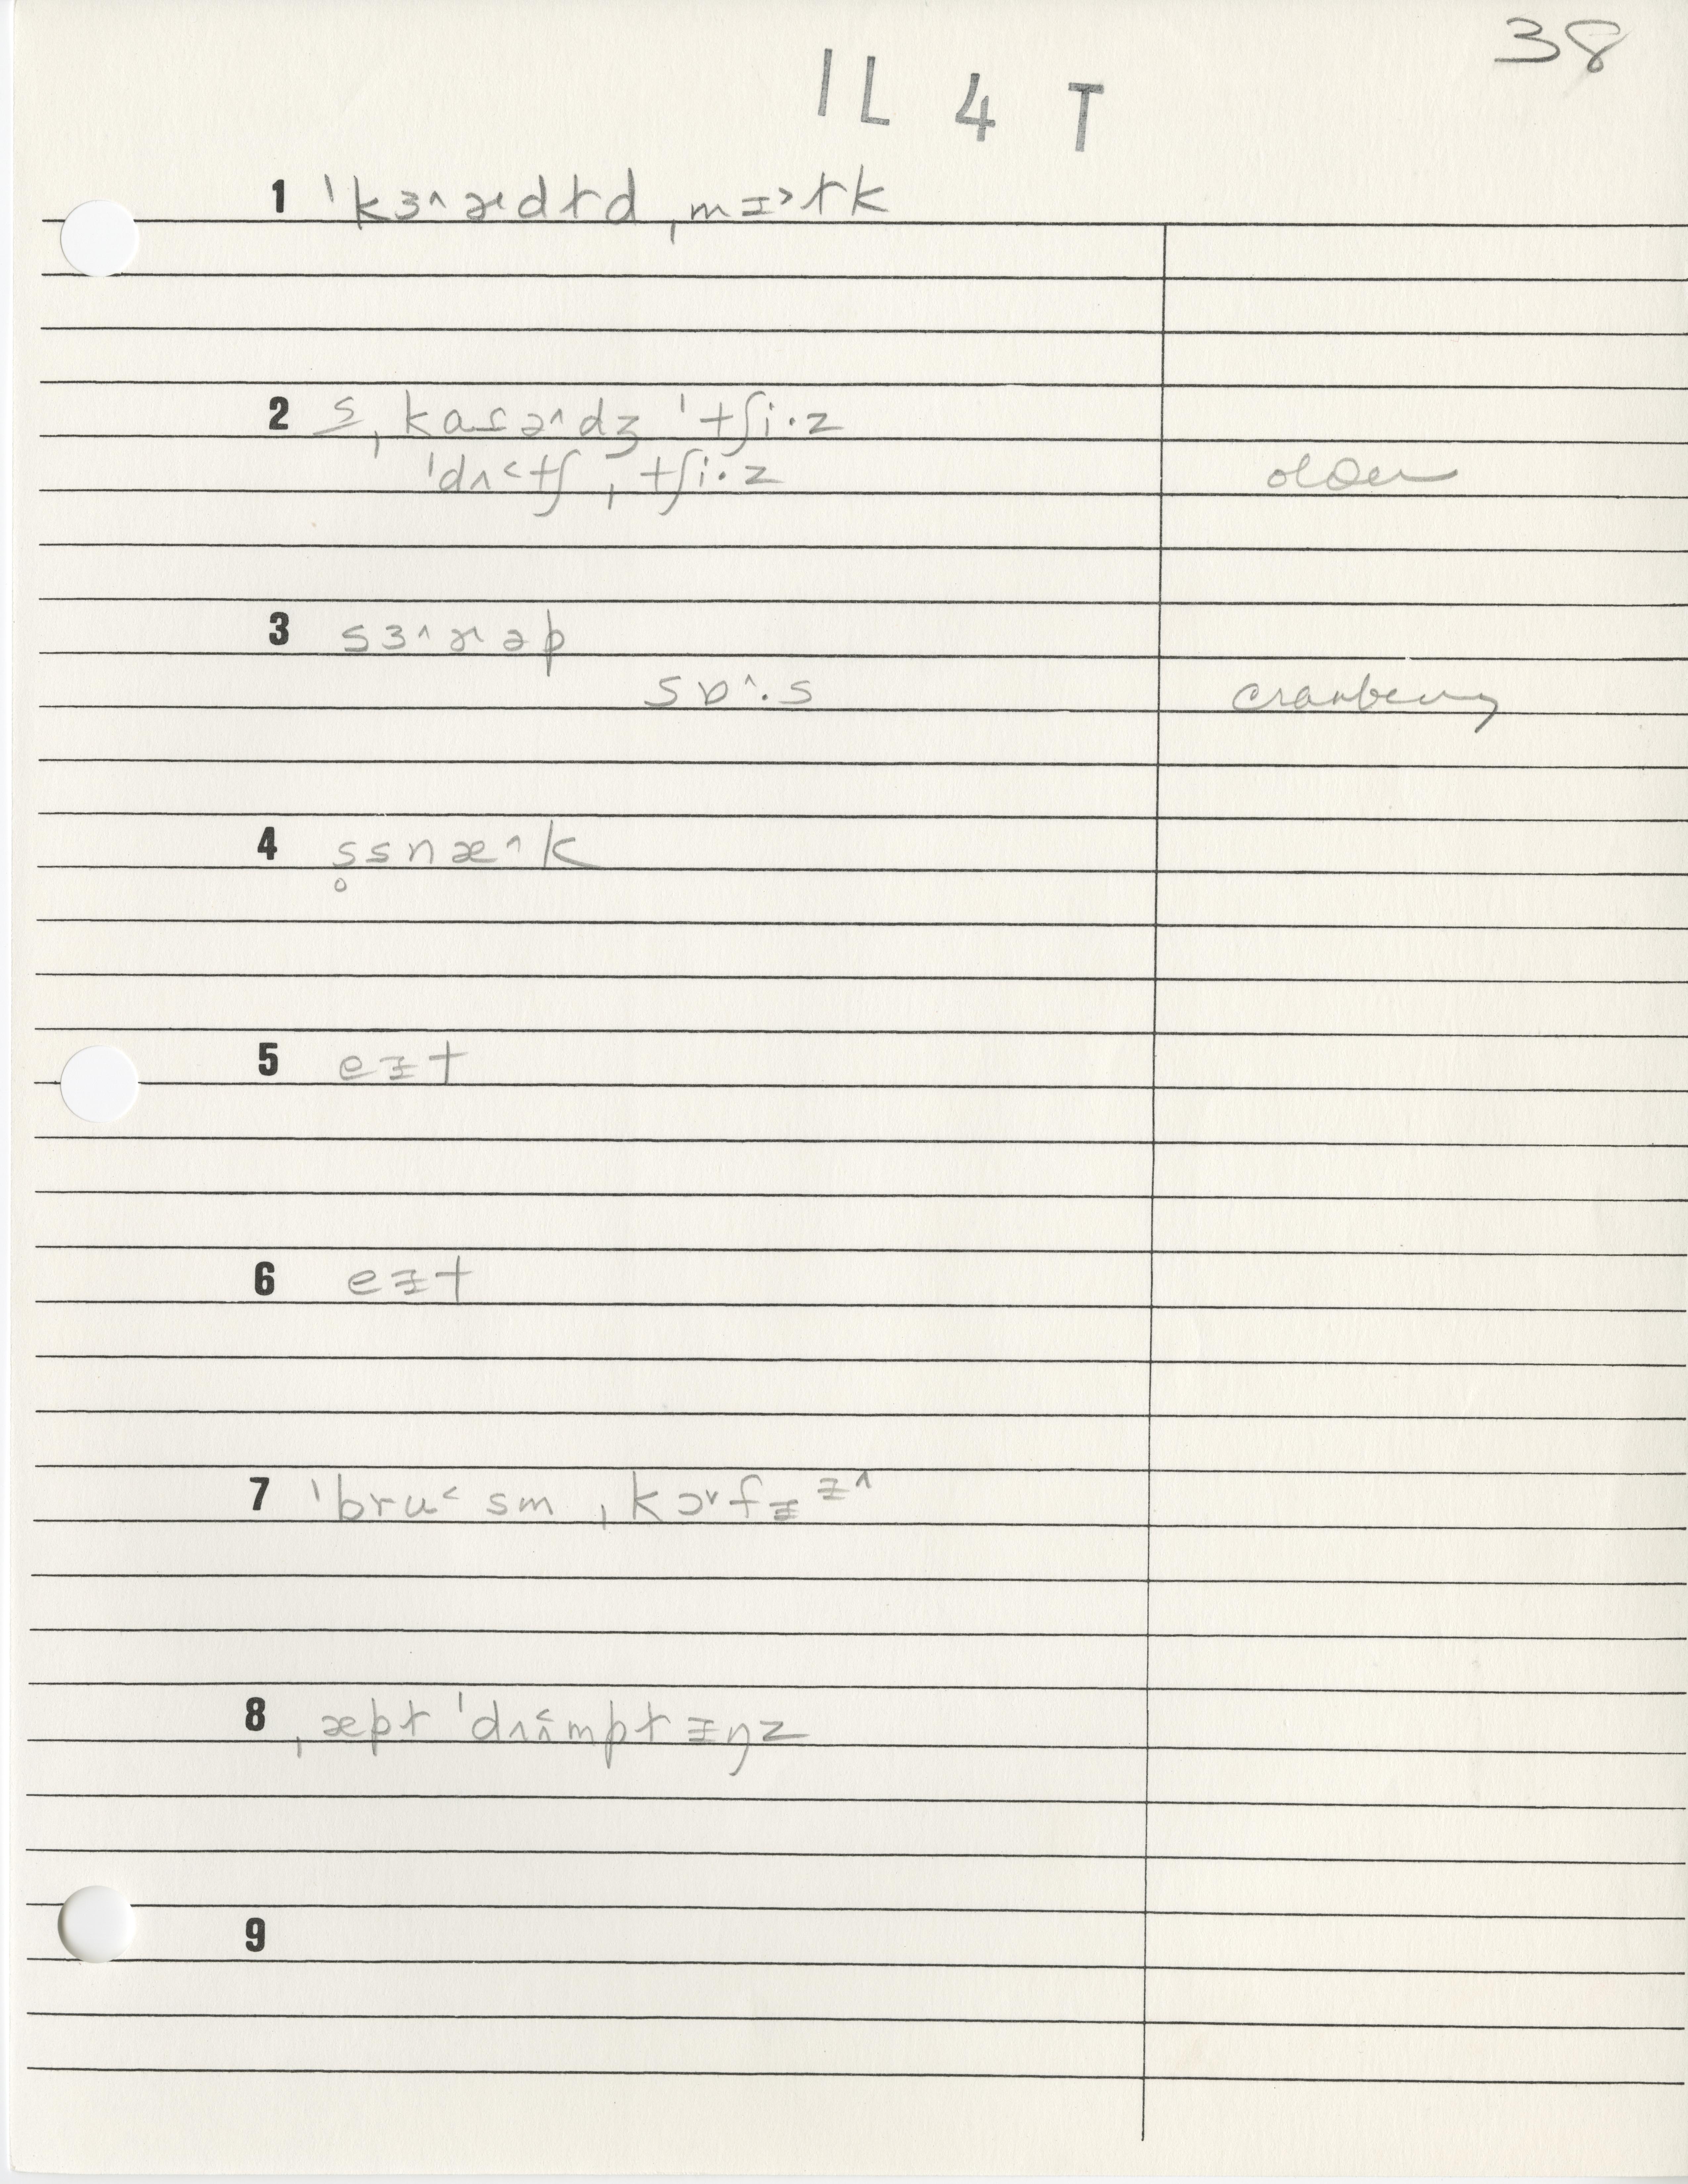 38
IL 4 T
1 ˈkɜ˄ɚdɫd ˌmɪ˃ɫk
2 s̲ˌkaɾə˄dʒ ˈtʃi·z
ˈdʌ˂tʃ ˌtʃi·z older
3 sɜ˄ɚəp
sɒ˄·s cranberry
4 s̥snæ˄k
5 eɪt
6 eɪt
7 ˈbru˂sm ˌkɔ˅fɪɪ˄
8 ˌæpɫ ˈdʌ˂mpɫɪŋz
9